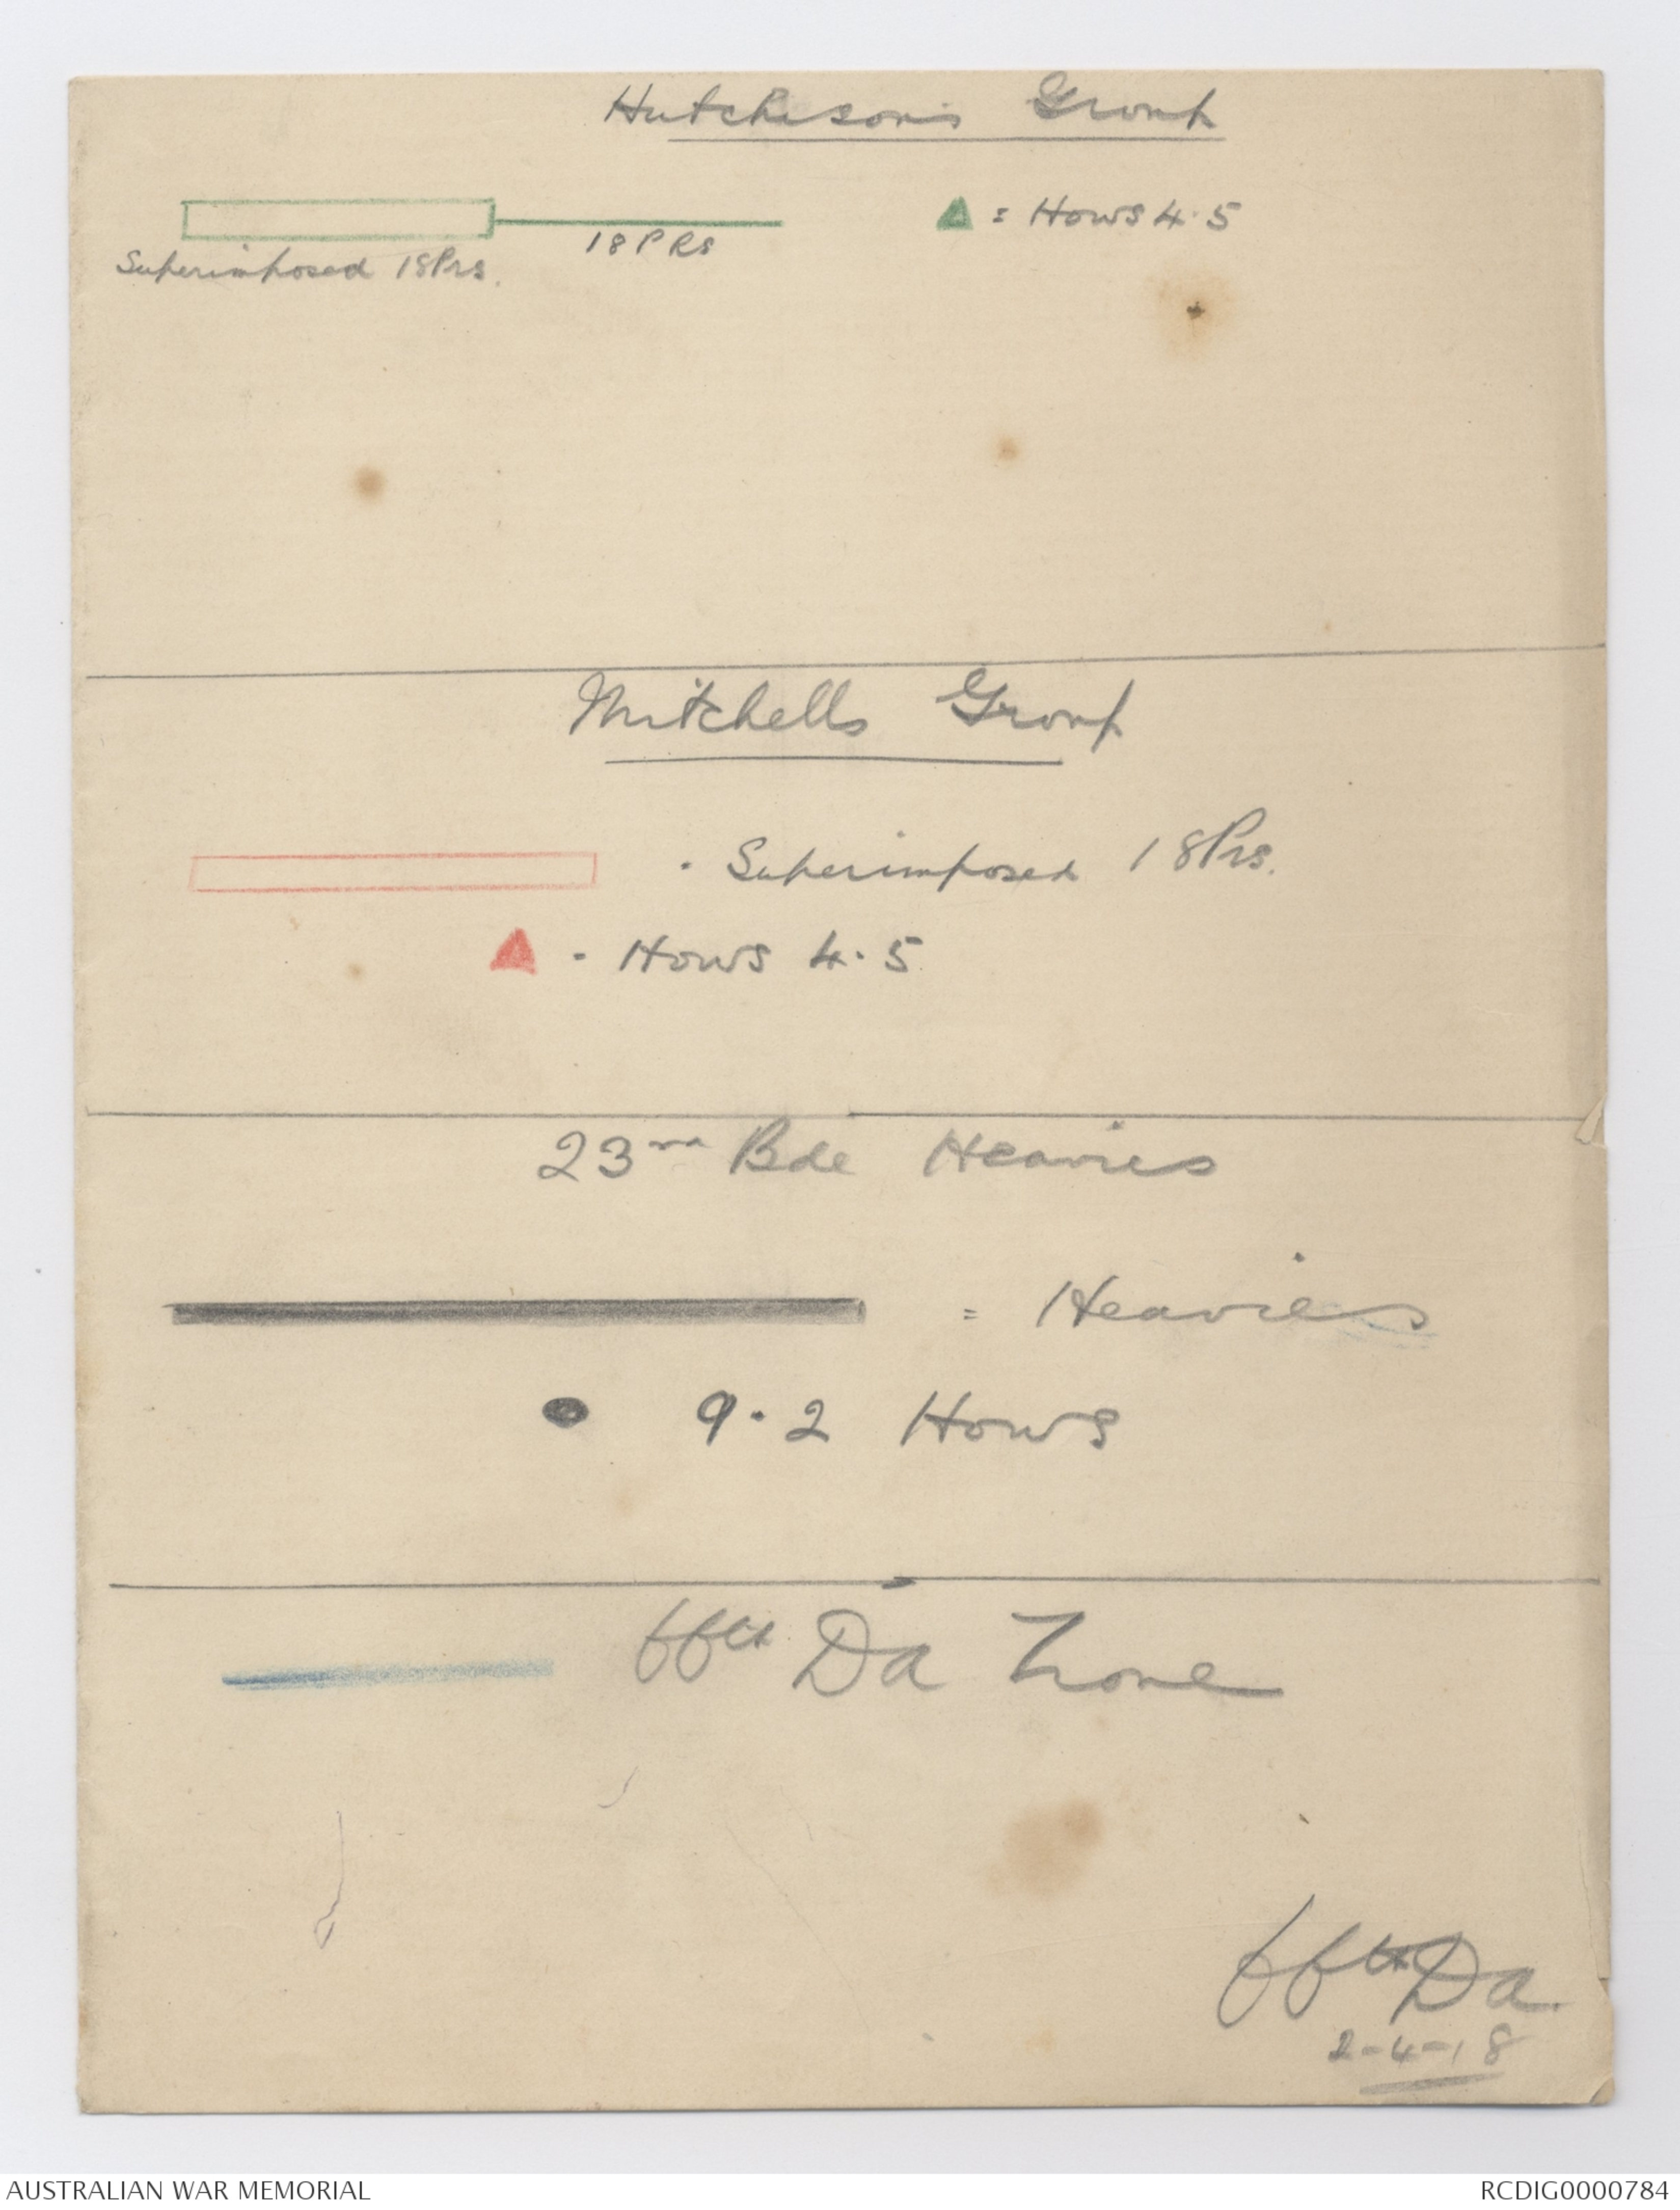 Hutchison's Group
= Hows 4.5
18PRS
Superimposed 18Prs.
Mitchells Group
- Superimposed 18Prs.
- Hows 4.5
23rd Bde Heavies
= Heavies
9.2 Hows
66th Da Zone
66th Da.
2-4-18
AUSTRALIAN WAR MEMORIAL
RCDIG0000784